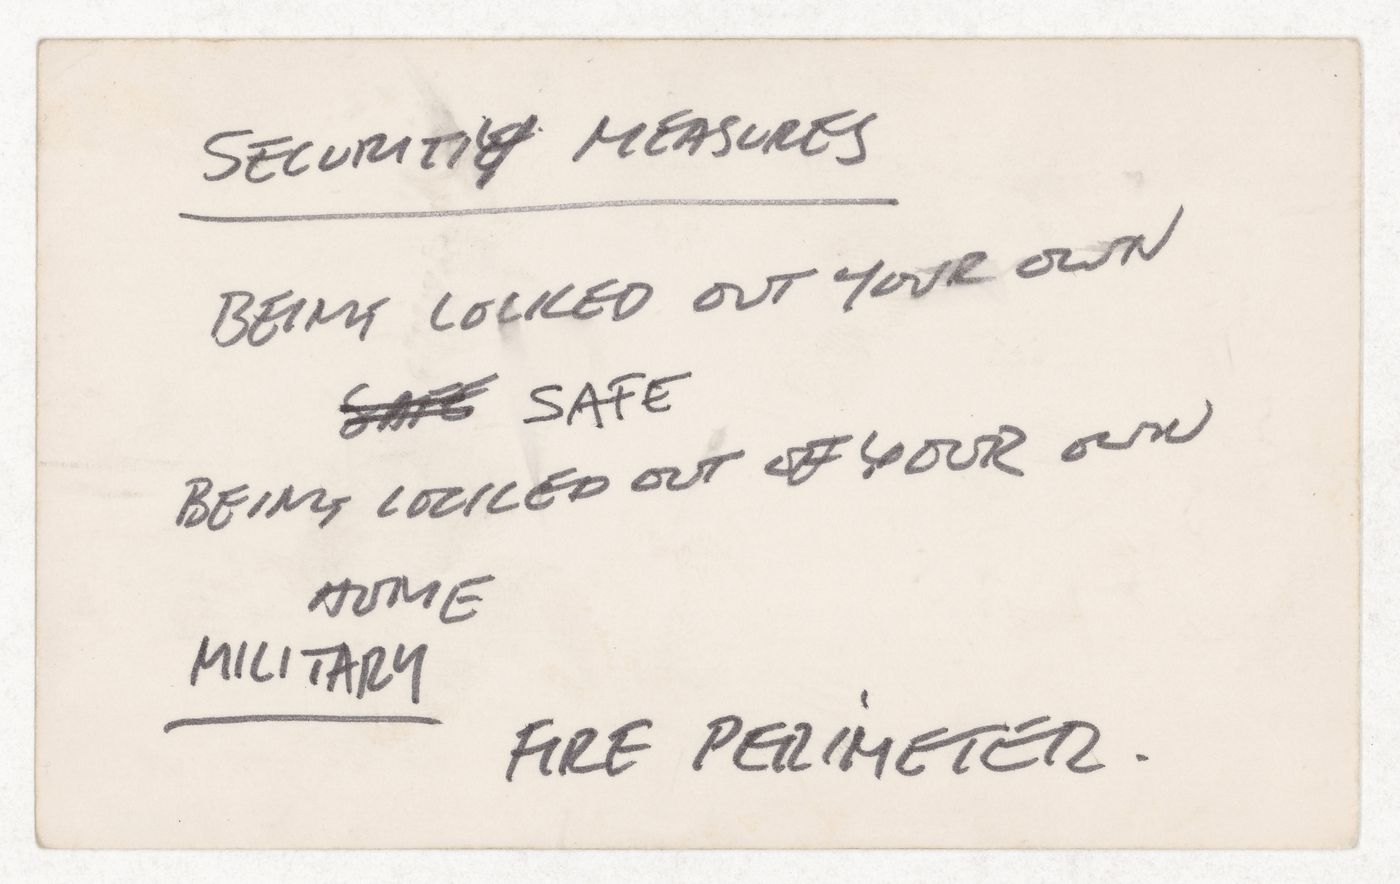 SECURITY MEASURES
BEING LOCKED OUT YOUR OWN
SAFE SAFE
BEING LOCKED OUT OF YOUR OWN
HOME
MILITARY
FIRE PERIMETER.